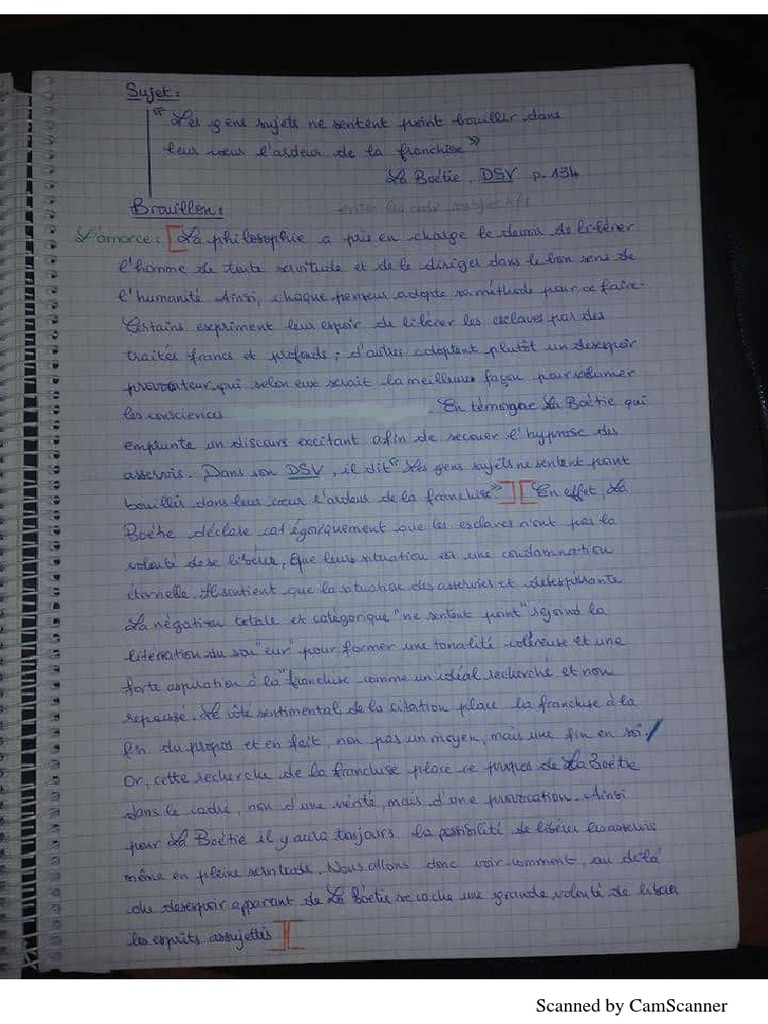 Sujet :
"Les gens sujets ne sentent point bouillir dans
leur cœur l'ardeur de la franchise"
La Boétie, DSV p. 134
Brouillon :
L'amorce : [La philosophie a pris en charge le devoir de libérer
l'homme de toute servitude et de le diriger dans le bon sens de
l'humanité. Ainsi, chaque penseur adopte sa méthode pour ce faire.
Certains expriment leur espoir de libérer les esclaves par des
traités francs et profonds ; d'autres adoptent plutôt un desespoir
provocateur qui selon eux serait la meilleure façon pour
les consciences En témoigne La Boétie qui
emprunte un discours excitant afin de secouer l'hypnose des
asservis. Dans son DSV, il dit "Les gens sujets ne sentent point
bouillir dans leur cœur l'ardeur de la franchise"] [En effet, La
Boétie déclare catégoriquement que les esclaves n'ont pas la
volonté de se libérer, Que leur situation est une condamnation
éternelle. Il soutient que la situation des asservies et
La négation totale et catégorique "ne sentent point" rejoind la
litération du son "eur" pour former une tonalité coléreuse et une
forte aspiration à la "franchise comme un idéal recherché et non
repoussé. Le côté sentimental de la citation place la franchise à la
fin du propos et en fait, non pas un moyen, mais une fin en soi /
Or, cette recherche de la franchise place ce propos de La Boétie
dans le cadre, non d'une vérité, mais d'une provocation. Ainsi
pour La Boétie il y aura toujours la possibilité de libérer les asservis
même en pleine servitude. Nous allons donc voir comment, au delà
du desespoir apparant de La Boétie se cache une grande volonté de libérer
les esprits assujettis]
Scanned by CamScanner